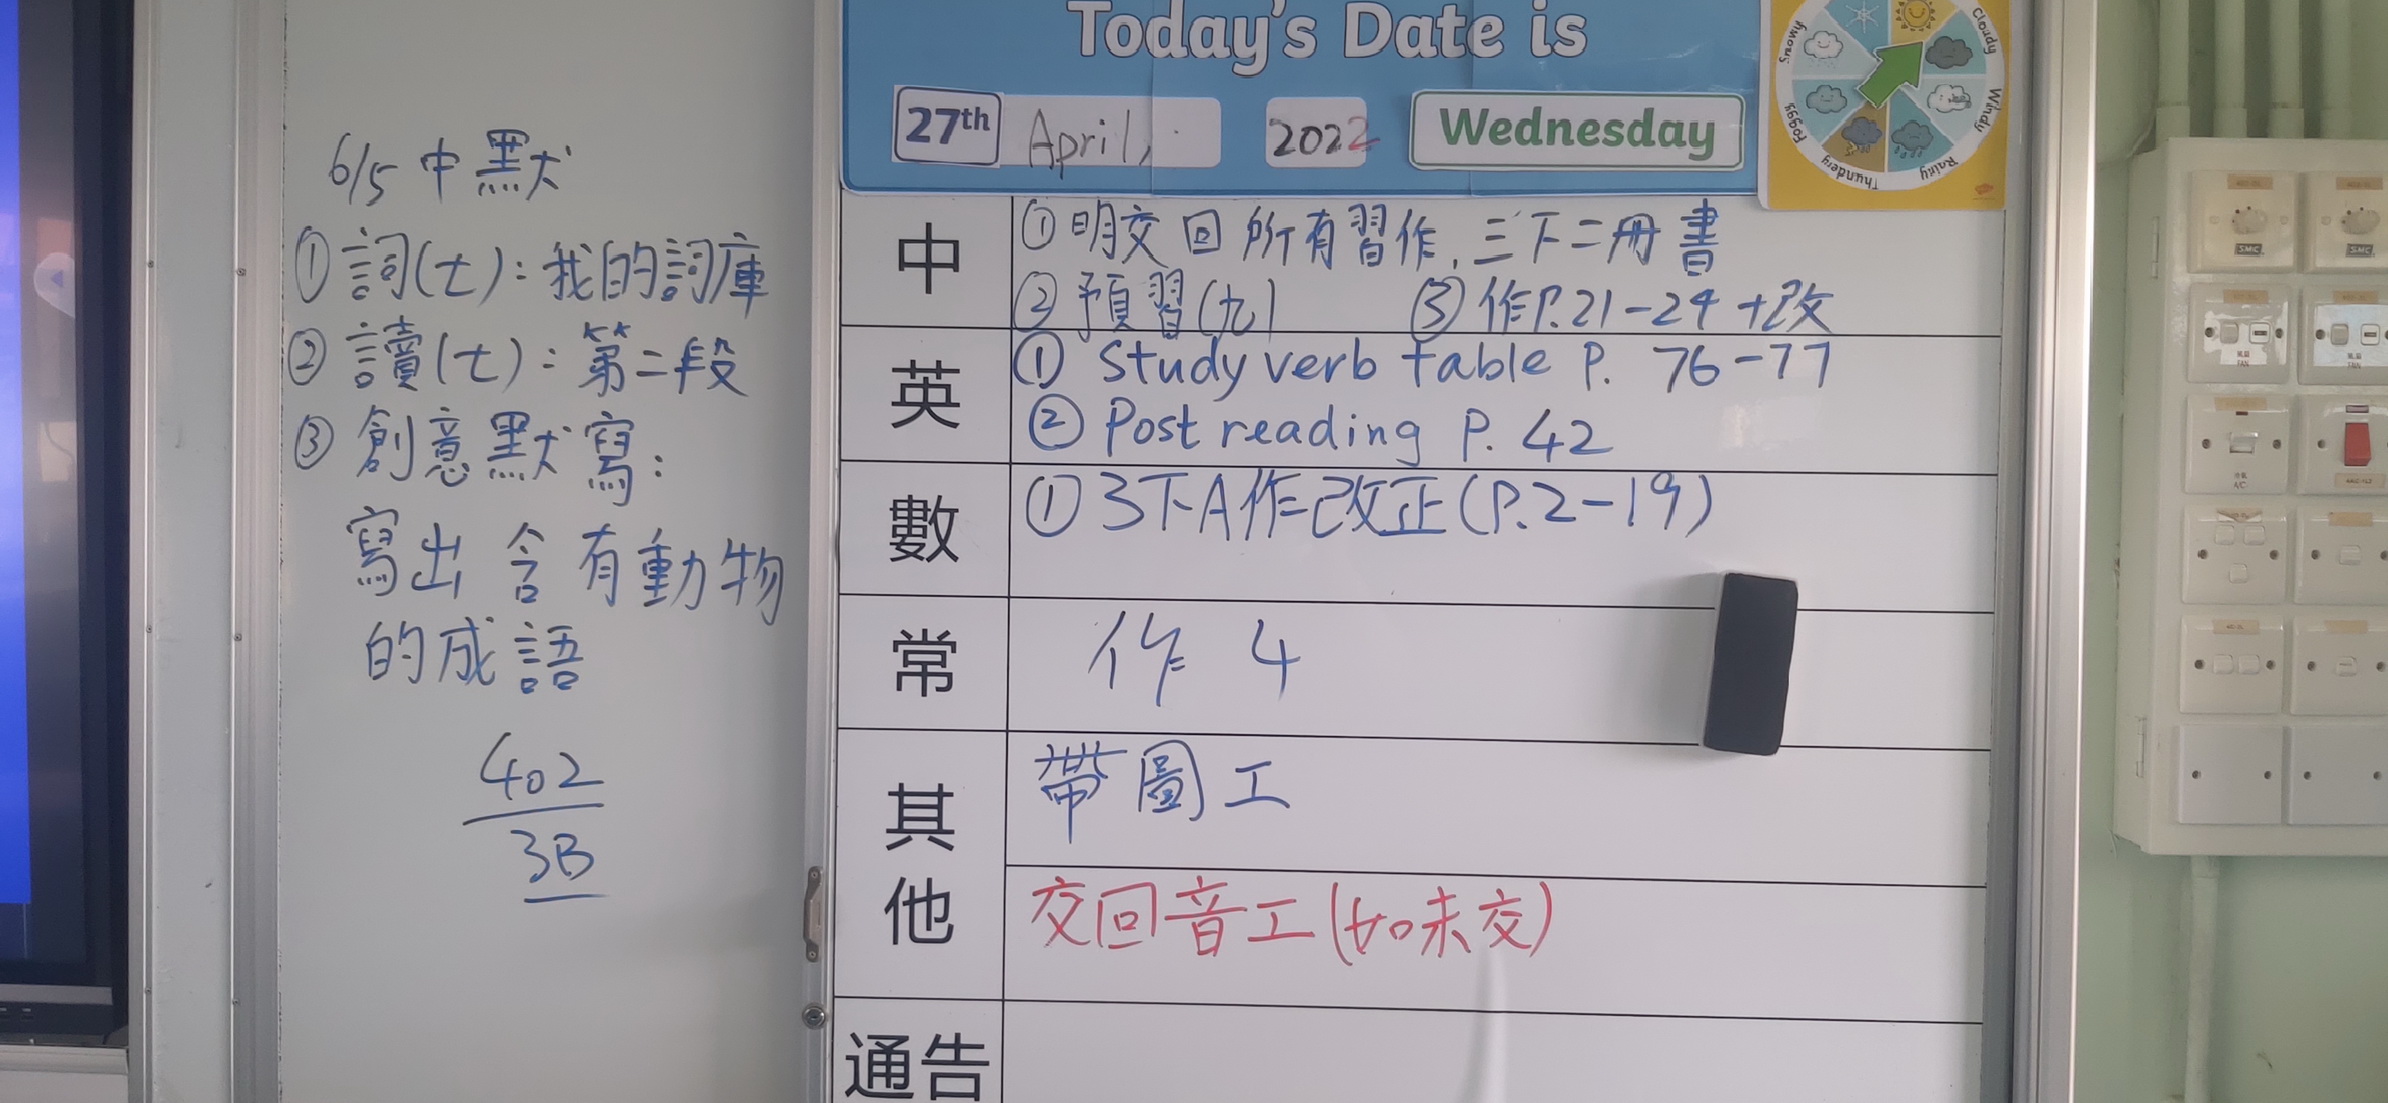 6/5 中默
① 詞(七)：我的詞庫
② 讀(七)：第二段
③ 創意默寫：
寫出含有動物
的成語
402
3B
Today's Date is
27th April, 2022 Wednesday
Snowy
Cloudy
Windy
Rainy
Thundery
Foggy
中
①明交回所有習作,三下二冊書
②預習(九) ③作P.21-24+改
英
① Study verb table P. 76-77
② Post reading P. 42
數
① 3下A作改正(P.2-19)
常
作 4
其他
帶圖工
交回音工(如未交)
通告